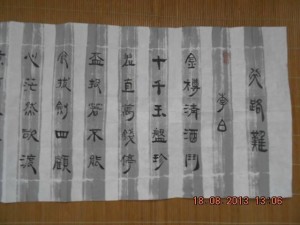 行路難
李白
金樽清酒鬥
十千玉盤珍
羞直萬錢停
盃投箸不能
食拔劍四顧
心茫然欲渡
18-08-2013 13:06